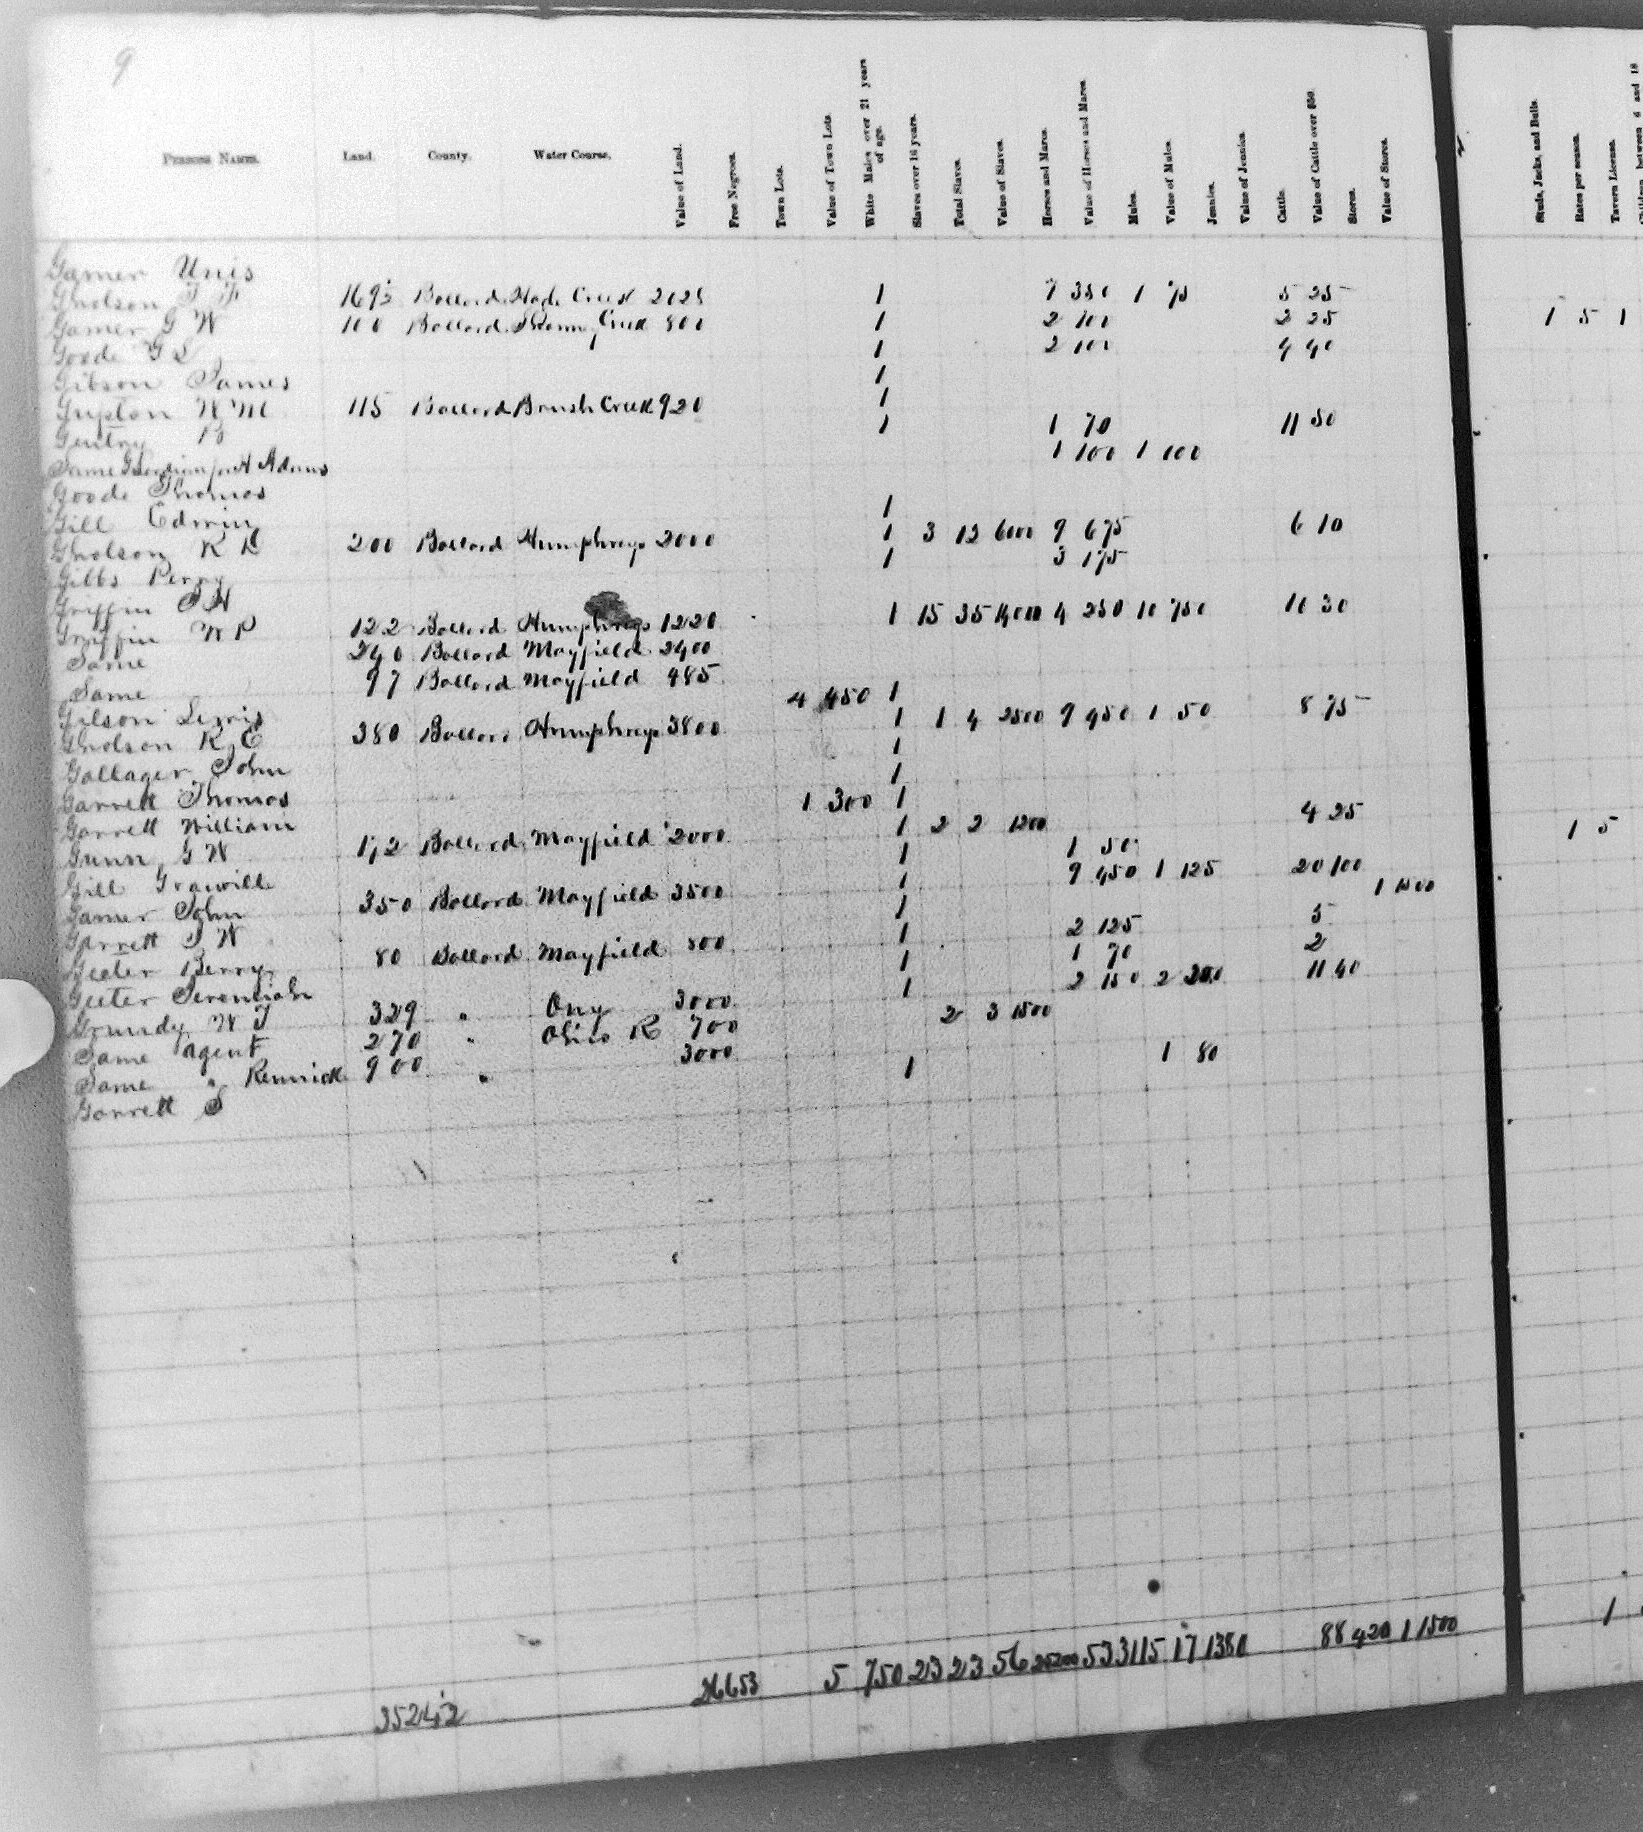 9
Persons Names. Land. County. Water Course. Value of Land. Free Negroes. Town Lots. Value of Town Lots. White Males over 21 years of age. Slaves over 16 years. Total Slaves. Value of Slaves. Horses and Mares. Value of Horses and Mares Mules. Value of Mules. Jennies. Value of Jennies. Cattle. Value of Cattle over $50. Stores. Value of Stores. Studs, Jacks, and Bulls. Rates per season. Tavern License. Children between 6 and 18
Garner Unis
Gholson T F 169½ Ballard Creek 2025 1 7 350 1 75 5 25
Garner G W 100 Ballard Creek 800 1 2 100 2 25 1 5 1
Goode G L 1 2 101 4 40
Gibson James 1
Gupton W M 115 Ballard Brush Creek 920 1
Gentry B 1 1 70 11 50
Same Guardian for H Adams 1 100 1 100
Goode Thomas
Gill Edwin 1
Gholson R R 200 Ballard Humphreys 2000 1 3 12 6000 9 675 6 10
Gibbs Perry 1 3 175
Griffin
Griffin W P 122 Ballard Humphreys 1220 1 15 35 14000 4 250 10 750 10 30
Same 240 Ballard Mayfield 2400
Same 97 Ballard Mayfield 485
Gilson Lewis 4 450 1
Gholson R C 380 Ballard Humphreys 3800 1 1 4 2500 9 450 1 50 8 75
Gallager John 1
Garrett Thomas 1
Garrett William 1 300 1
Gunn G W 172 Ballard Mayfield 2000 1 2 2 1200 4 25 1 5
Gill 1 1 50
Garner John 350 Ballard Mayfield 3500 1 9 450 1 125 20 100
Garrett J W 1 1 1500
Geeter Berry 80 Ballard Mayfield 800 1 2 125 5
Geeter Jeremiah 1 1 70 2
Grundy W T 329 " 3000 1 2 150 2 200 11 40
Same Agent 270 " Ohio R 700 2 3 1500
Same " Renwick 900 " 3000
Garrett S 1 1 80
3524½ 26653 5 750 23 23 56 25200 53 3115 17 1380 88 420 1 1500 1